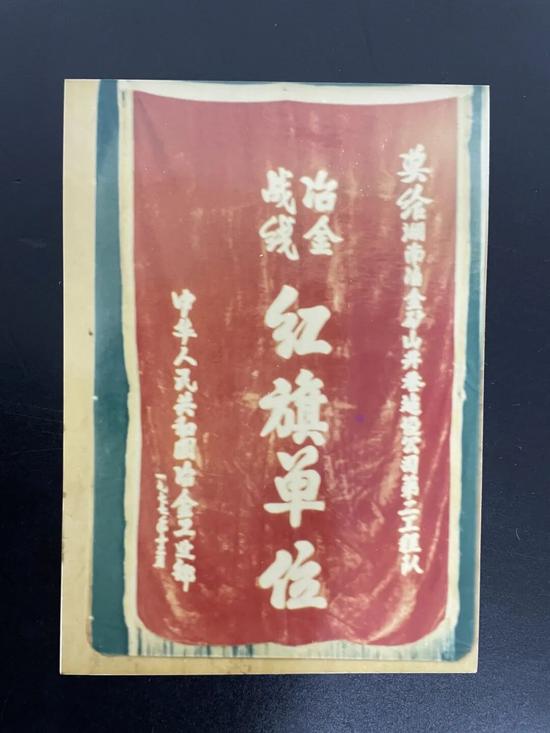 奖给湖南冶金矿山井巷建设公司第二工程队
冶金
战线
红旗单位
中华人民共和国冶金工业部